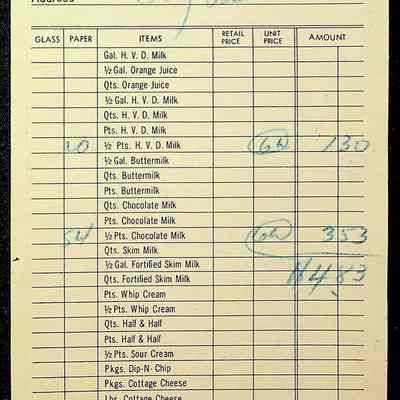 Address
GLASS PAPER ITEMS RETAIL PRICE UNIT PRICE AMOUNT
Gal. H. V. D. Milk
½ Gal. Orange Juice
Qts. Orange Juice
½ Gal. H. V. D. Milk
Qts. H. V. D. Milk
Pts. H. V. D. Milk
20 ½ Pts. H. V. D. Milk 6½ 130
½ Gal. Buttermilk
Qts. Buttermilk
Pts. Buttermilk
Qts. Chocolate Milk
Pts. Chocolate Milk
54 ½ Pts. Chocolate Milk 6½ 353
Qts. Skim Milk
½ Gal. Fortified Skim Milk 483
Qts. Fortified Skim Milk
Pts. Whip Cream
½ Pts. Whip Cream
Qts. Half & Half
Pts. Half & Half
½ Pts. Sour Cream
Pkgs. Dip-N-Chip
Pkgs. Cottage Cheese
Lbs. Cottage Cheese